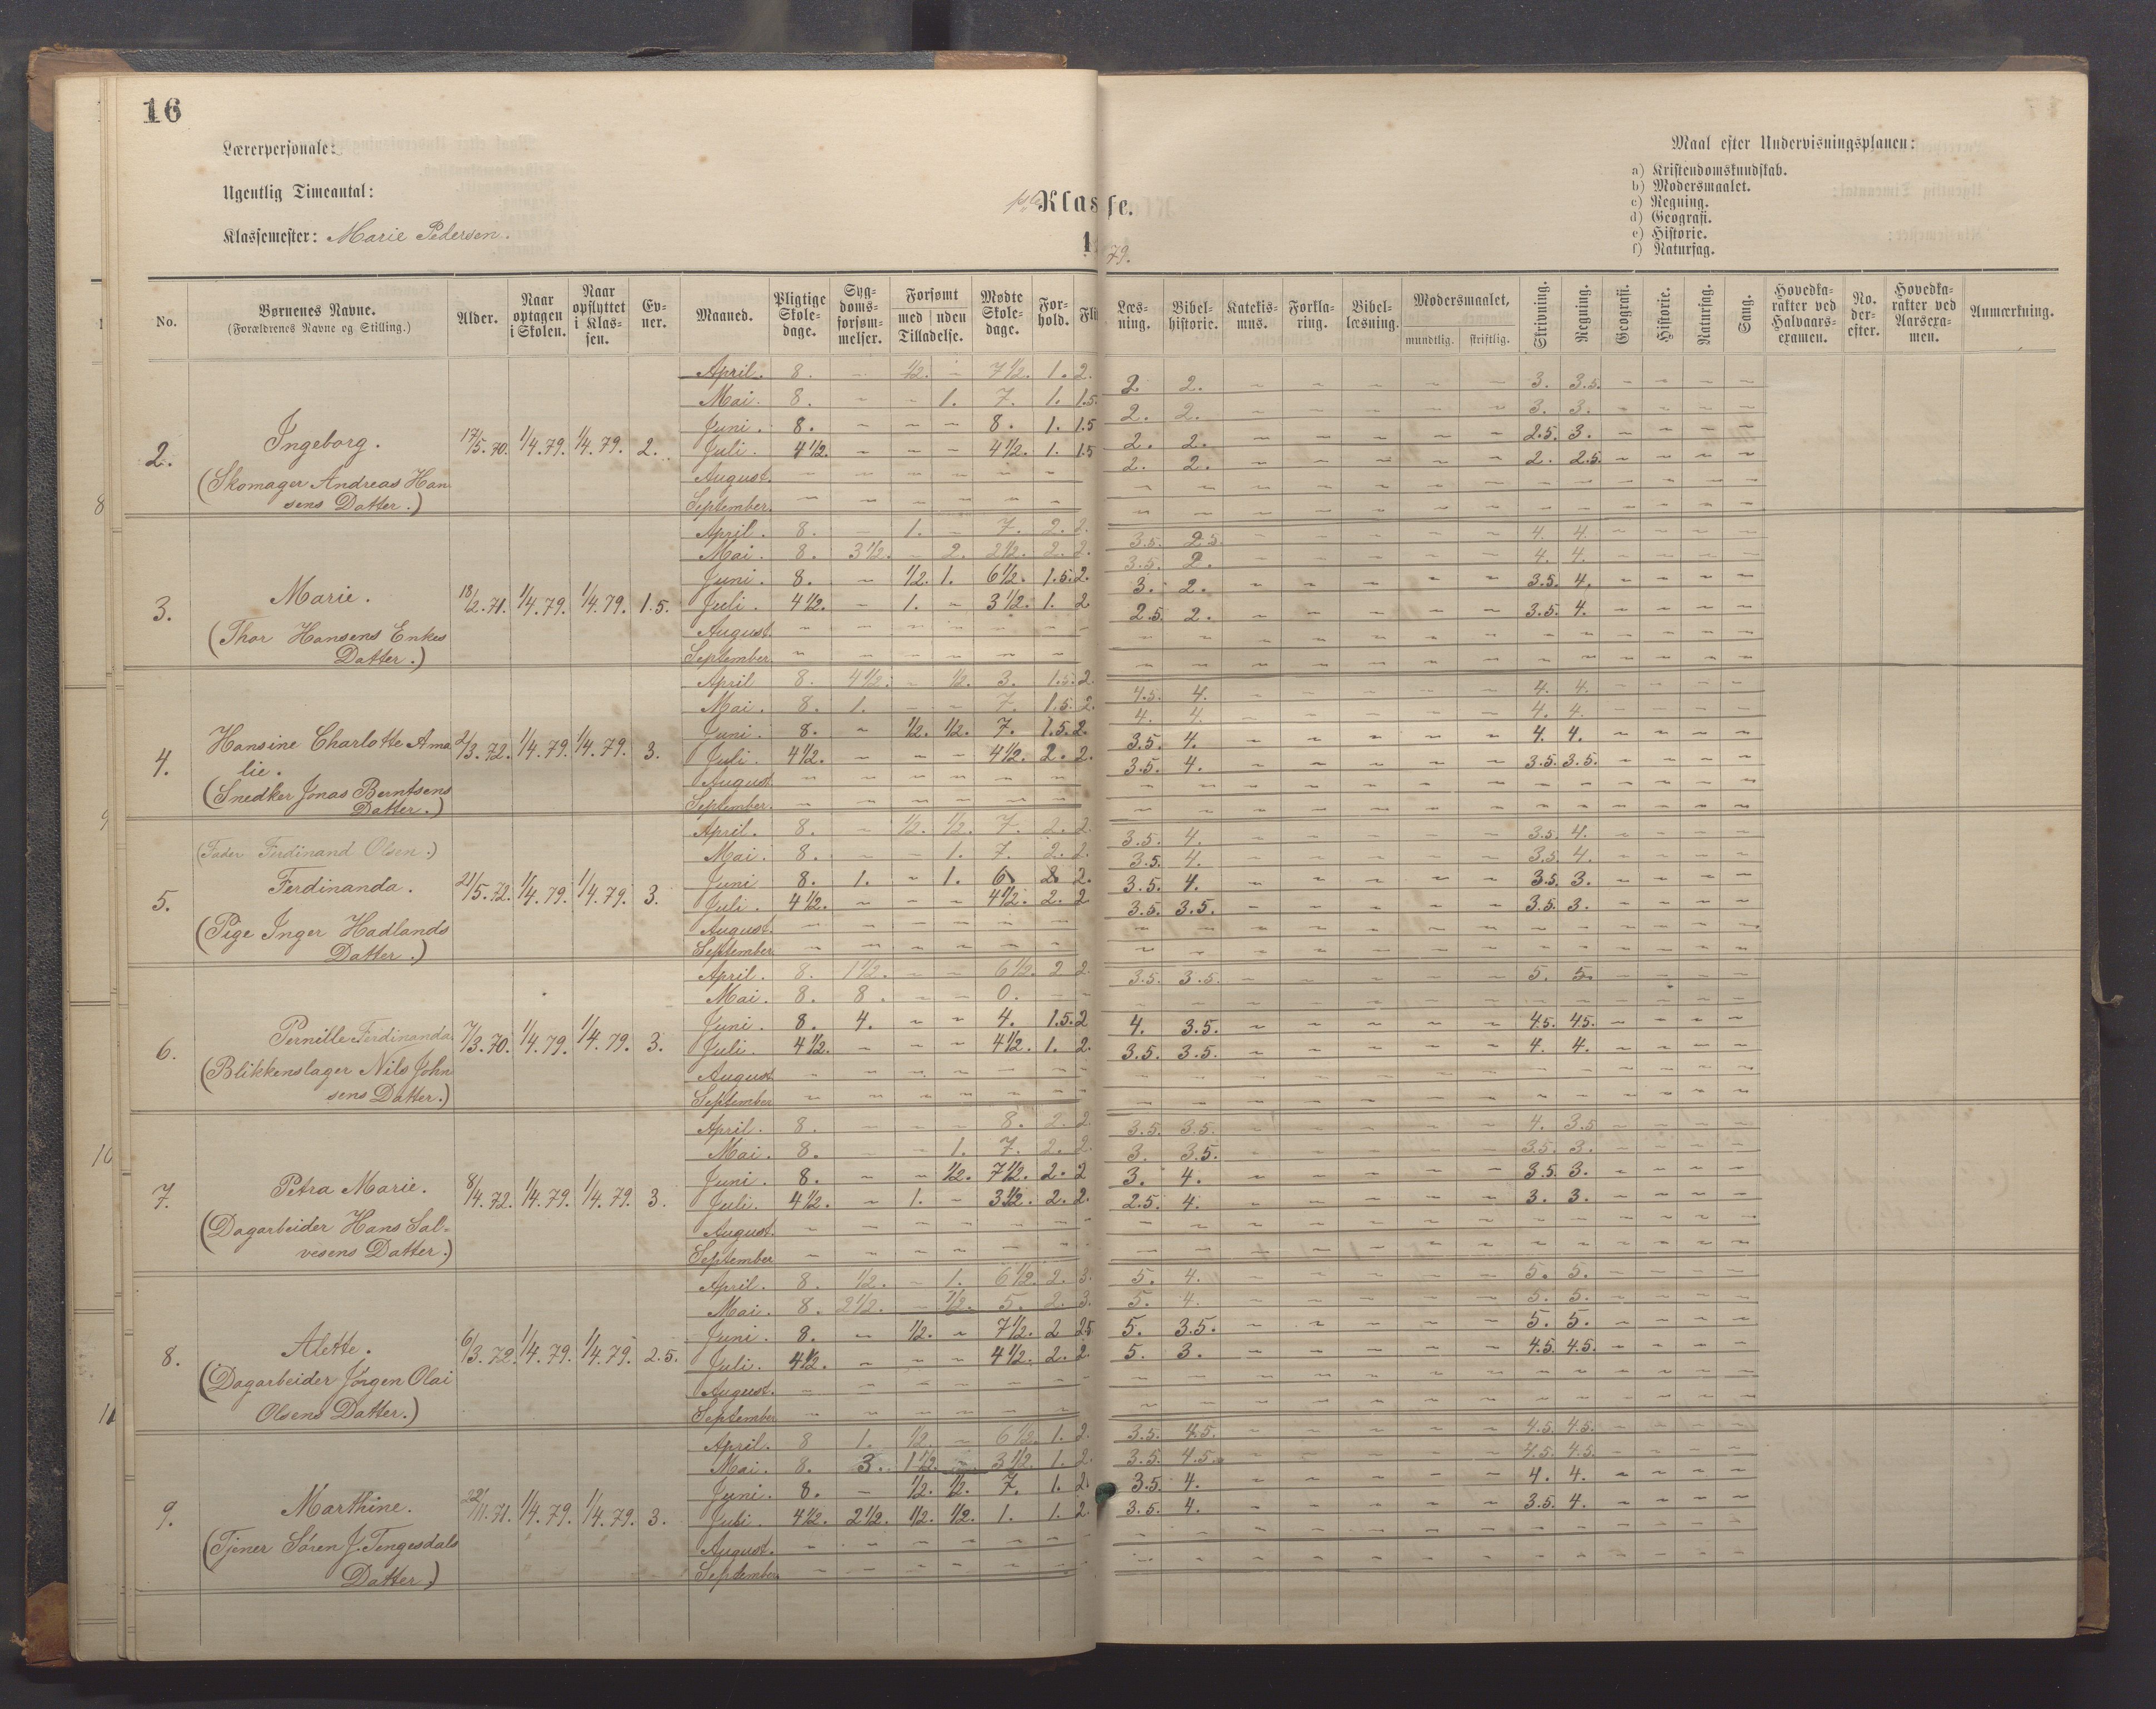 16
Lærerpersonale:
Ugentlig Timeantal:
Klassemester: Marie Pedersen.
Klasse.
79.
Maal efter Undervisningsplanen:
a) Kristendomskundskab.
b) Modersmaalet.
c) Regning.
d) Geografi.
e) Historie.
f) Naturfag.
No. Børnenes Navne. (Forældrenes Navne og Stilling.) Alder. Naar optagen i Skolen. Naar opflyttet i Klassen. Evner. Maaned. Pligtige Skoledage. Sygdomsforsømmelser. Forsømt med uden Tilladelse. Mødte Skoledage. Forhold. Fli Læsning. Bibelhistorie. Katekismus. Forklaring. Bibellæsning. Modersmaalet, mundtlig. skriftlig. Skrivning. Regning. Geografi. Historie. Naturfag. Sang. Hovedkarakter ved Halvaarsexamen. No. derefter. Hovedkarakter ved Aarsexamen. Anmærkning.
April. 8. – ½. – 7½. 1. 2. 2 2. – – – – – 3. 3.5. – – – –
Mai. 8. – – 1. 7. 1. 1.5. 2. 2. – – – – – 3. 3. – – – –
Juni. 8. – – – 8. 1. 1.5 2. 2. – – – – – 2.5. 3. – – – –
2. Ingeborg. 17/5.70. 1/4.79. 1/4.79. 2. Juli. 4½. – – – 4½. 1. 1.5 2. 2. – – – – – 2. 2.5. – – – –
(Skomager Andreas Han August.
sens Datter.) September.
April. 8. – 1. – 7. 2. 2. 3.5. 2.5. – – – – – 4. 4. – – – –
Mai. 8. 3½. – 2. 2½. 2. 2. 3.5. 2. – – – – – 4. 4. – – – –
Juni. 8. – ½. 1. 6½. 1.5. 2. 3. 2. – – – – – 3.5. 4. – – – –
3. Marie. 18/2.71. 1/4.79. 1/4.79. 1.5. Juli. 4½. – 1. – 3½. 1. 2 2.5 2. – – – – – 3.5. 4. – – – –
(Thor Hansens Enkes August.
Datter.) September.
April 8. 4½. – ½. 3. 1.5. 2. 4.5. 4. – – – – – 4. 4. – – – –
Mai. 8. 1. – – 7. 1.5. 2. 4. 4. – – – – – 4. 4. – – – –
Juni. 8. – ½. ½. 7. 1.5. 2. 3.5. 4. – – – – – 4. 4. – – – –
4. Hansine Charlotte Ama 2/3.72. 1/4.79. 1/4.79. 3. Juli. 4½. – – – 4½. 2. 2. 3.5. 4. – – – – – 3.5. 3.5. – – – –
lie. August.
(Snedker Jonas Berntsens September.
Datter.)
April. 8. – ½. ½. 7. 2. 2. 3.5. 4. – – – – – 3.5. 4. – – – –
(Fader Ferdinand Olsen.) Mai. 8. – – 1. 7. 2. 2. 3.5. 4. – – – – – 3.5. 4. – – – –
Ferdinanda. Juni 8. 1. – 1. 6 2. 2. 3.5. 4. – – – – – 3.5. 3. – – – –
5. 21/5.72. 1/4.79. 1/4.79. 3. Juli. 4½. – – – 4½. 2. 2 3.5. 3.5. – – – – – 3.5. 3. – – – –
(Pige Inger Hadlands August.
Datter.) September.
April. 8. 1½. – – 6½. 2 2. 3.5. 3.5. – – – – – 5. 5. – – – –
Mai. 8. 8. – – 0. – –
Juni. 8. 4. – – 4. 1.5. 2 4. 3.5. – – – – – 4.5. 4.5. – – – –
6. Pernille Ferdinanda. 7/3.70. 1/4.79. 1/4.79. 3. Juli. 4½. – – – 4½. 1. 2. 3.5. 3.5. – – – – – 4. 4. – – – –
(Blikkenslager Nils John August.
sens Datter.) September
April. 8. – – – 8. 2. 2. 3.5. 3.5. – – – – – 4. 3.5 – – – –
Mai. 8. – – 1. 7. 2. 2. 3. 3.5. – – – – – 3.5. 3. – – – –
Juni. 8. – – ½. 7½. 2. 2 3. 4. – – – – – 3.5. 3. – – – –
7. Petra Marie. 8/4.72. 1/4.79. 1/4.79. 3. Juli. 4½. – 1. – 3½. 2. 2. 2.5. 4. – – – – – 3. 3. – – – –
(Dagarbeider Hans Sal- August.
vesens Datter.) September
April. 8. ½. – 1. 6½. 2. 3. 5. 4. – – – – – 5. 5. – – – –
Mai. 8. 2½. – ½. 5. 2. 3. 5. 4. – – – – – 5. 5. – – – –
Juni. 8. – ½. – 7½. 2 2.5 5. 3.5. – – – – – 5. 5. – – – –
8. Alette. 6/3.72. 1/4.79. 1/4.79. 2.5. Juli. 4½. – – – 4½. 2. 2. 5. 3. – – – – – 4.5. 4.5. – – – –
(Dagarbeider Jörgen Olai August.
Olsens Datter.) September
April. 8 1. ½. – 6½. 1. 2. 3.5. 4.5. – – – – – 4.5. 4.5. – – – –
Mai. 8. 3. 1½. – 3½. 1. 2. 3.5. 4.5. – – – – – 4.5. 4.5. – – – –
Juni. 8. – ½. ½. 7. 1. 2. 3.5. 4. – – – – – 4. 4. – – – –
9. Marthine. 22/11.71. 1/4.79. 1/4.79. 3. Juli. 4½. 2½. ½. ½. 1. 1. 2. 3.5. 4. – – – – – 3.5. 4. – – – –
(Tjener Søren J. Tengesdals August.
Datter.) September.
8
9
10
11